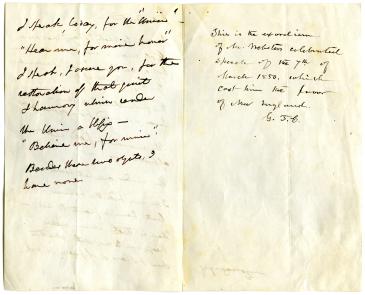 I speak, to day, for the "Union"
"Hear me, for mine honor"
I speak, I assure you, for the
restoration of that quiet
& harmony which render
the Union a blessing —
"Believe me, for mine"
Besides these two objects, I
have none
This is the exordium
of Mr Websters celebrated
speech of the 7th of
March 1850, which
cost him the favor
of New England.
G. T. C.